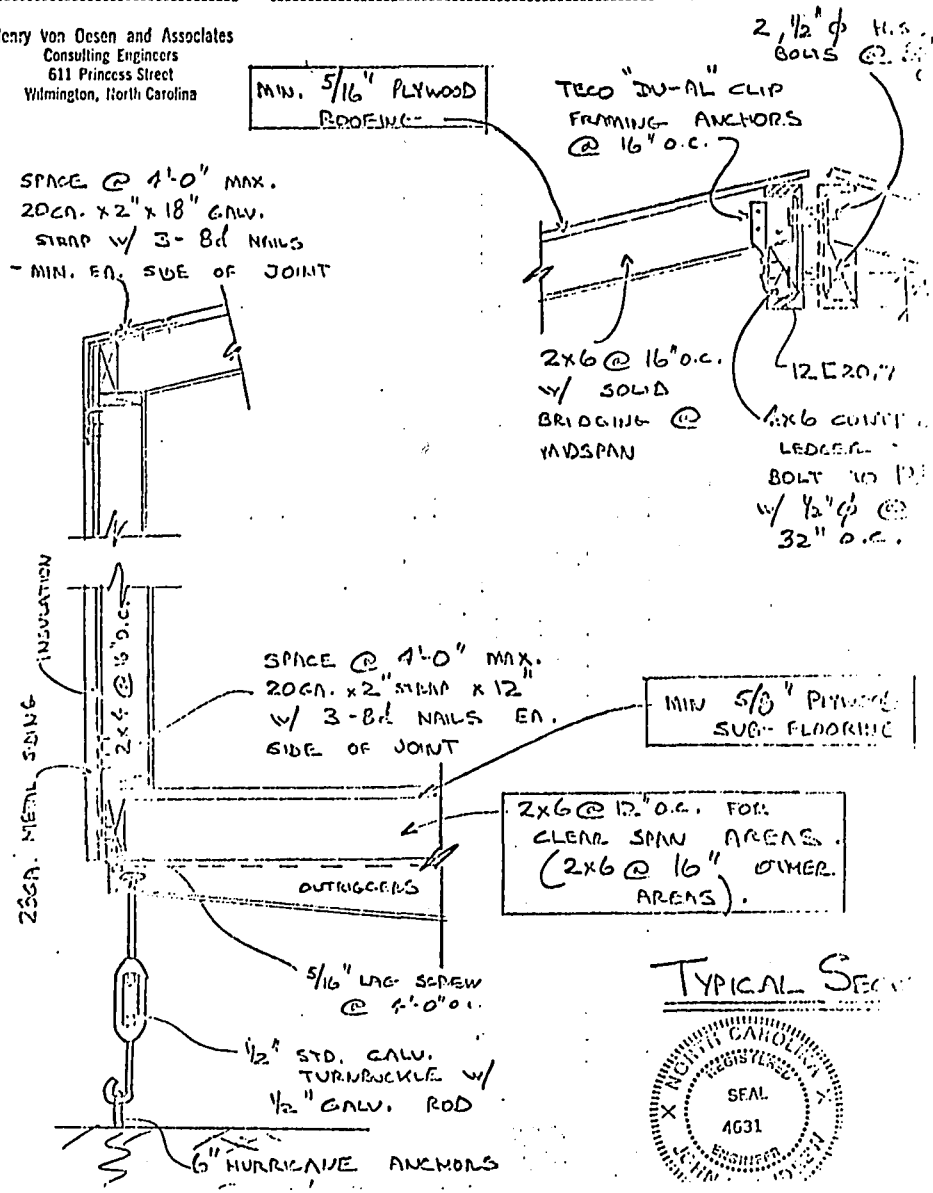 enry Von Oesen and Associates
Consulting Engineers
611 Princess Street
Wilmington, North Carolina
MIN. 5/16" PLYWOOD
ROOFING
TECO "DU-AL" CLIP
FRAMING ANCHORS
@ 16" O.C.
2, 1/2" ϕ H.S.
BOLTS @
SPACE @ 4'-0" MAX.
20GA. x 2" x 18" GALV.
STRAP W/ 3-8d NAILS
- MIN. EA. SIDE OF JOINT
2x6 @ 16" O.C.
W/ SOLID
BRIDGING @
MIDSPAN
12[20.7
4x6 CONT.
LEDGER
BOLT TO
W/ 1/2" ϕ @
32" O.C.
INSULATION
2x4 @ 16" O.C.
METAL SIDING
SPACE @ 4'-0" MAX.
20GA. x 2" STRAP x 12"
W/ 3-8d NAILS EA.
SIDE OF JOINT
MIN 5/8" PLYWOOD
SUB-FLOORING
2x6 @ 12" O.C. FOR
CLEAR SPAN AREAS.
(2x6 @ 16" OTHER
AREAS).
OUTRIGGERS
5/16" LAG SCREW
@ 4'-0" O.C.
1/2" STD. GALV.
TURNBUCKLE W/
1/2" GALV. ROD
6" HURRICANE ANCHORS
TYPICAL
NORTH CAROLINA
REGISTERED
SEAL
4631
ENGINEER
JOHN